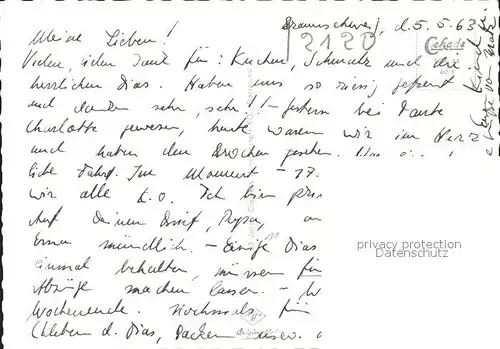 Braunschweig, d. 5.5.63
[2120
Cekade
Meine Lieben!
Vielen, vielen Dank für: Kuchen, Schmalz und die
herrlichen Dias. Haben uns so riesig gefreut
und danken sehr, sehr! – Gestern bei Tante
Charlotte gewesen, heute waren wir im Harz
und haben den Brocken gesehen.
liche Fahrt. Im Moment – 17.
wir alle k.o. Ich bin
Auf Deinen Brief, Papa,
Ernen mündlich. – Einige Dias
einmal behalten, müssen für
Abzüge machen lassen. – W
Wochenende. Nochmals für
(Kleben d. Dias, Packen usw.
privacy protection
Datenschutz